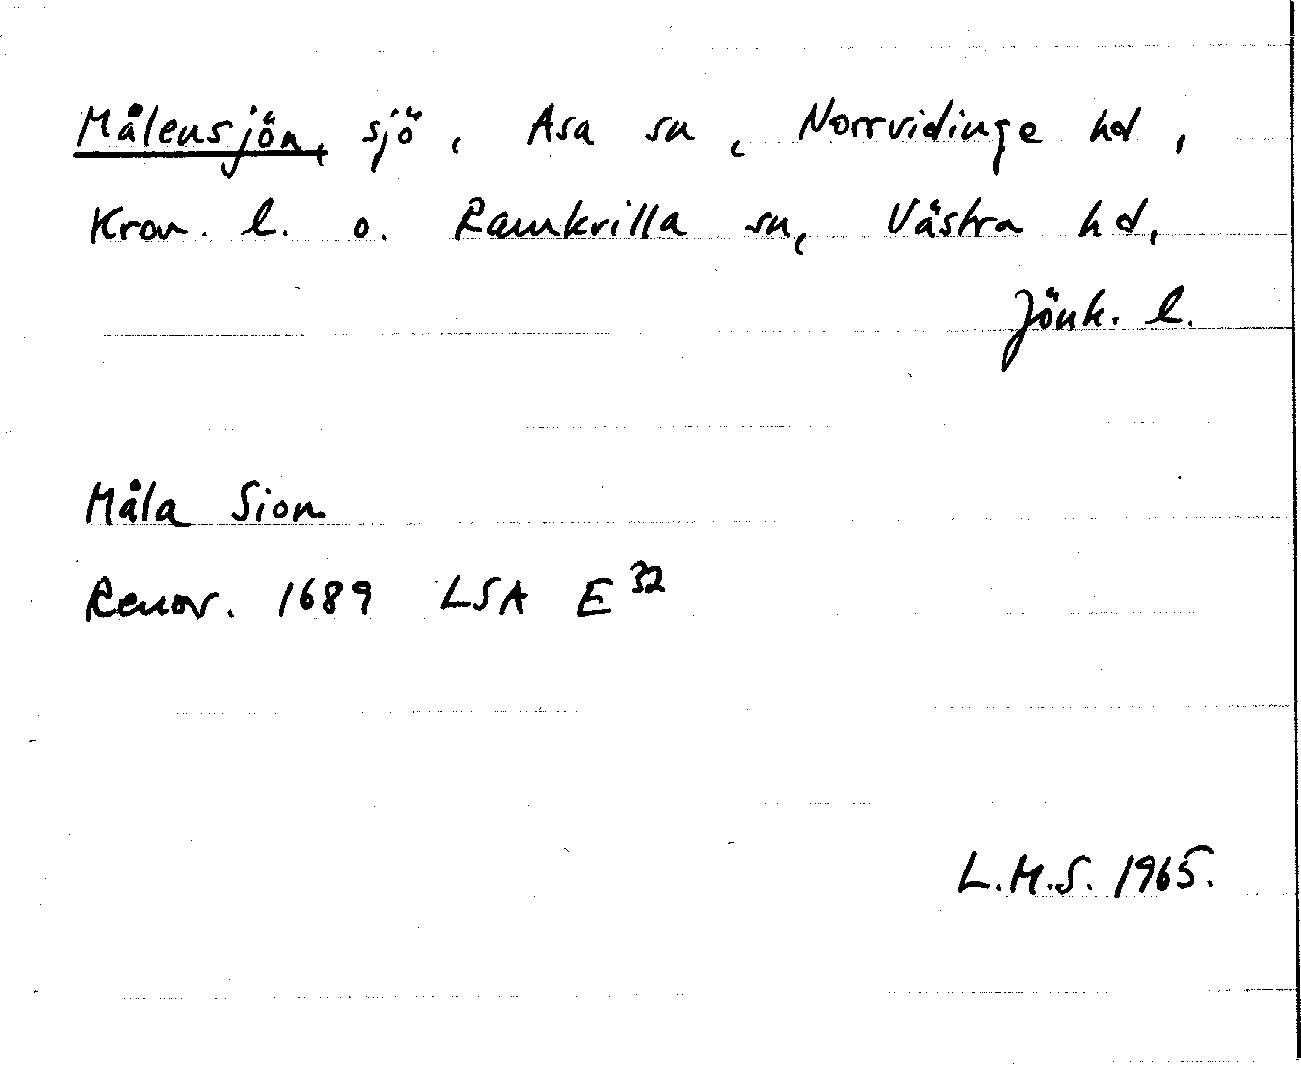 Målensjön, sjö, Asa sn, Norrvidinge hd,
Kron. l. o. Ramkvilla sn, Västra hd,
Jönk. l.
Måla Sion
Renov. 1689 LSA E 32
L.M.S. 1965.